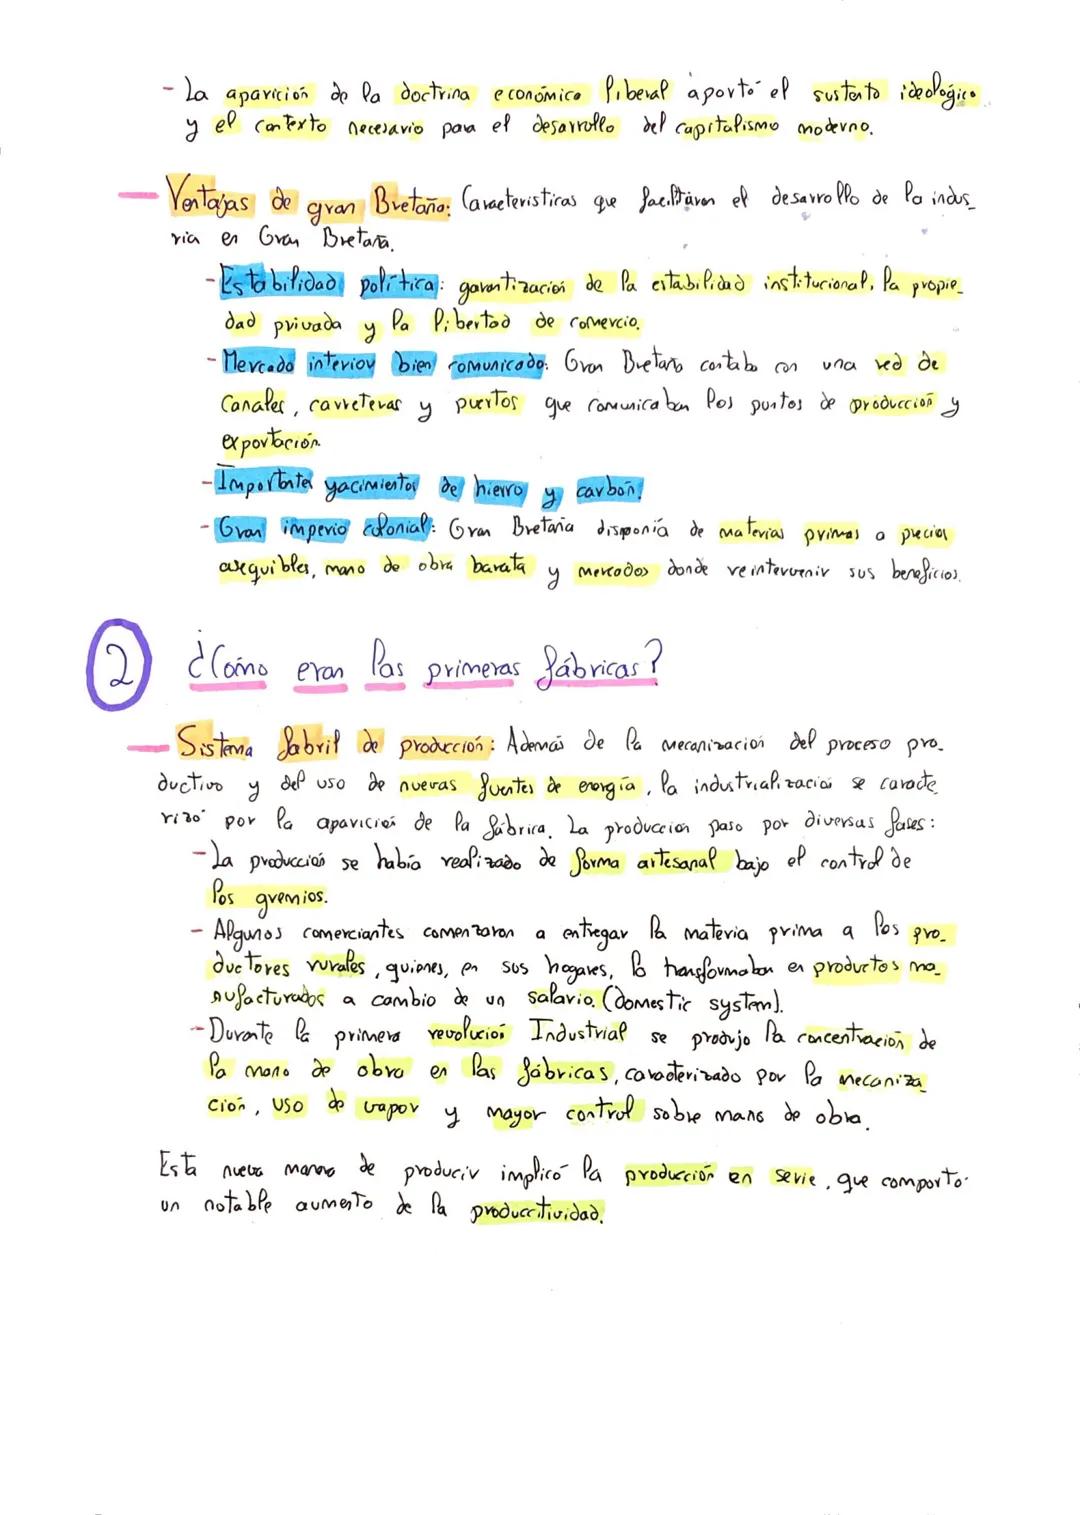 - La aparición de la doctrina económica liberal aportó el sustento ideológico
y el contexto necesario para el desarrollo del capitalismo moderno.
- Ventajas de gran Bretaña: Caracteristicas que facilitaron el desarrollo de la indus_
ria en Gran Bretaña.
- Estabilidad política: garantización de la estabilidad institucional, la propie_
dad privada y la libertad de comercio.
- Mercado interior bien comunicado: Gran Bretaña contaba con una red de
canales, carreteras y puertos que comunicaban los puntos de producción y
exportación.
- Importantes yacimientos de hierro y carbón.
- Gran imperio colonial: Gran Bretaña disponía de materias primas a precios
asequibles, mano de obra barata y mercados donde reintervenir sus beneficios.
2 ¿Cómo eran las primeras fábricas?
- Sistema fabril de producción: Además de la mecanización del proceso pro_
ductivo y del uso de nuevas fuentes de energía, la industrialización se caracte_
rizó por la aparición de la fábrica. La producción paso por diversas fases:
- La producción se había realizado de forma artesanal bajo el control de
los gremios.
- Algunos comerciantes comenzaron a entregar la materia prima a los pro_
ductores rurales, quienes, en sus hogares, la transformaban en productos ma_
nufacturados a cambio de un salario. (domestic system).
- Durante la primera revolución Industrial se produjo la concentración de
la mano de obra en las fábricas, caracterizado por la mecaniza_
ción, uso de vapor y mayor control sobre mano de obra.
Esta nueva manera de producir implicó la producción en serie, que comportó
un notable aumento de la productividad.